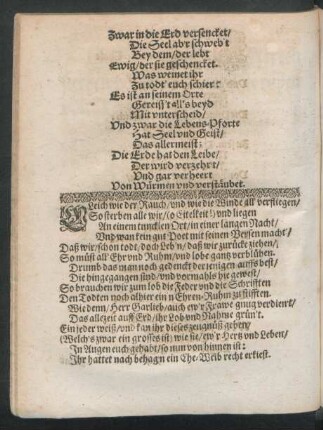 Zwar in die Erd versencket/
Die Seel abr schweb't
Bey dem/ der lebt
Ewig/ der sie geschencket.
Was weinet ihr
Zu todt euch schier?
Es ist an seinem Orte
Gereiss't all's beyd
Mit vnterscheid/
Vnd zwar die Lebens-Pforte
Hat Seel vnd Geist/
Das allermeist:
Die Erde hat den Leibe/
Der wird verzehrt/
Vnd gar verheert
Von Würmen vnd verstäubet.
Gleich wie der Rauch/ vnd wie die Winde all' verfliegen/
So sterben alle wir/ (o Eitelkeit!) vnd liegen
An einem tunckien Ort/ in einer langen Nacht/
Vnd wan kein gut Poet mit seinen Versen macht/
Daß wir/ schon todt/ doch Leb'n/ daß wir zurücke ziehen/
So müst all' Ehr vnd Ruhm/ vnd lobe gantz verblühen.
Drumb das man noch gedenckt derjenigen auffs best/
Die hingegangen sind/ vnd vormahls hie gewest/
So brauchen wir zum lob die Feder vnd die Schrifften
Den Todten noch alhier ein'n Ehren-Ruhm zu stifften.
Wie denn/ Herr Garlieb/ auch ew'r Frawe gnug verdient/
Das allezeit auff Erd/ ihr Lob vnd Nahme grün't.
Ein jeder weiß/ vnd kan ihr dieses zeugnüß geben/
(Welch's zwar ein grosses ist) wie sie/ ew'r Hertz vnd Leben/
In Augen euch gehabt/ so nun von hinnen ist:
Ihr hattet nach behagn ein Ehe-Weib recht erkiest.